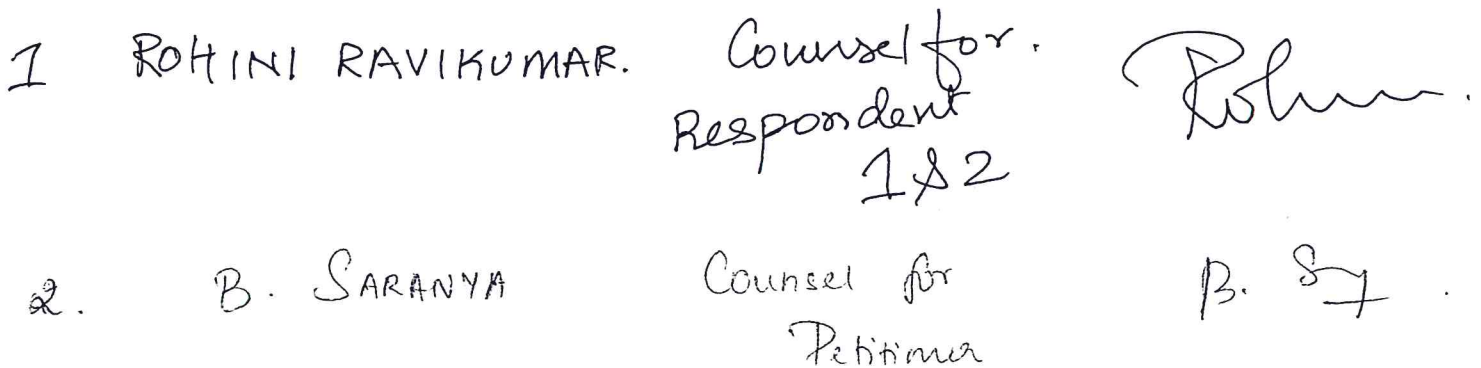 1 ROHINI RAVIKUMAR. Counsel for.
Respondent
1 & 2
2. B. SARANYA Counsel for B. Sy.
Petitioner